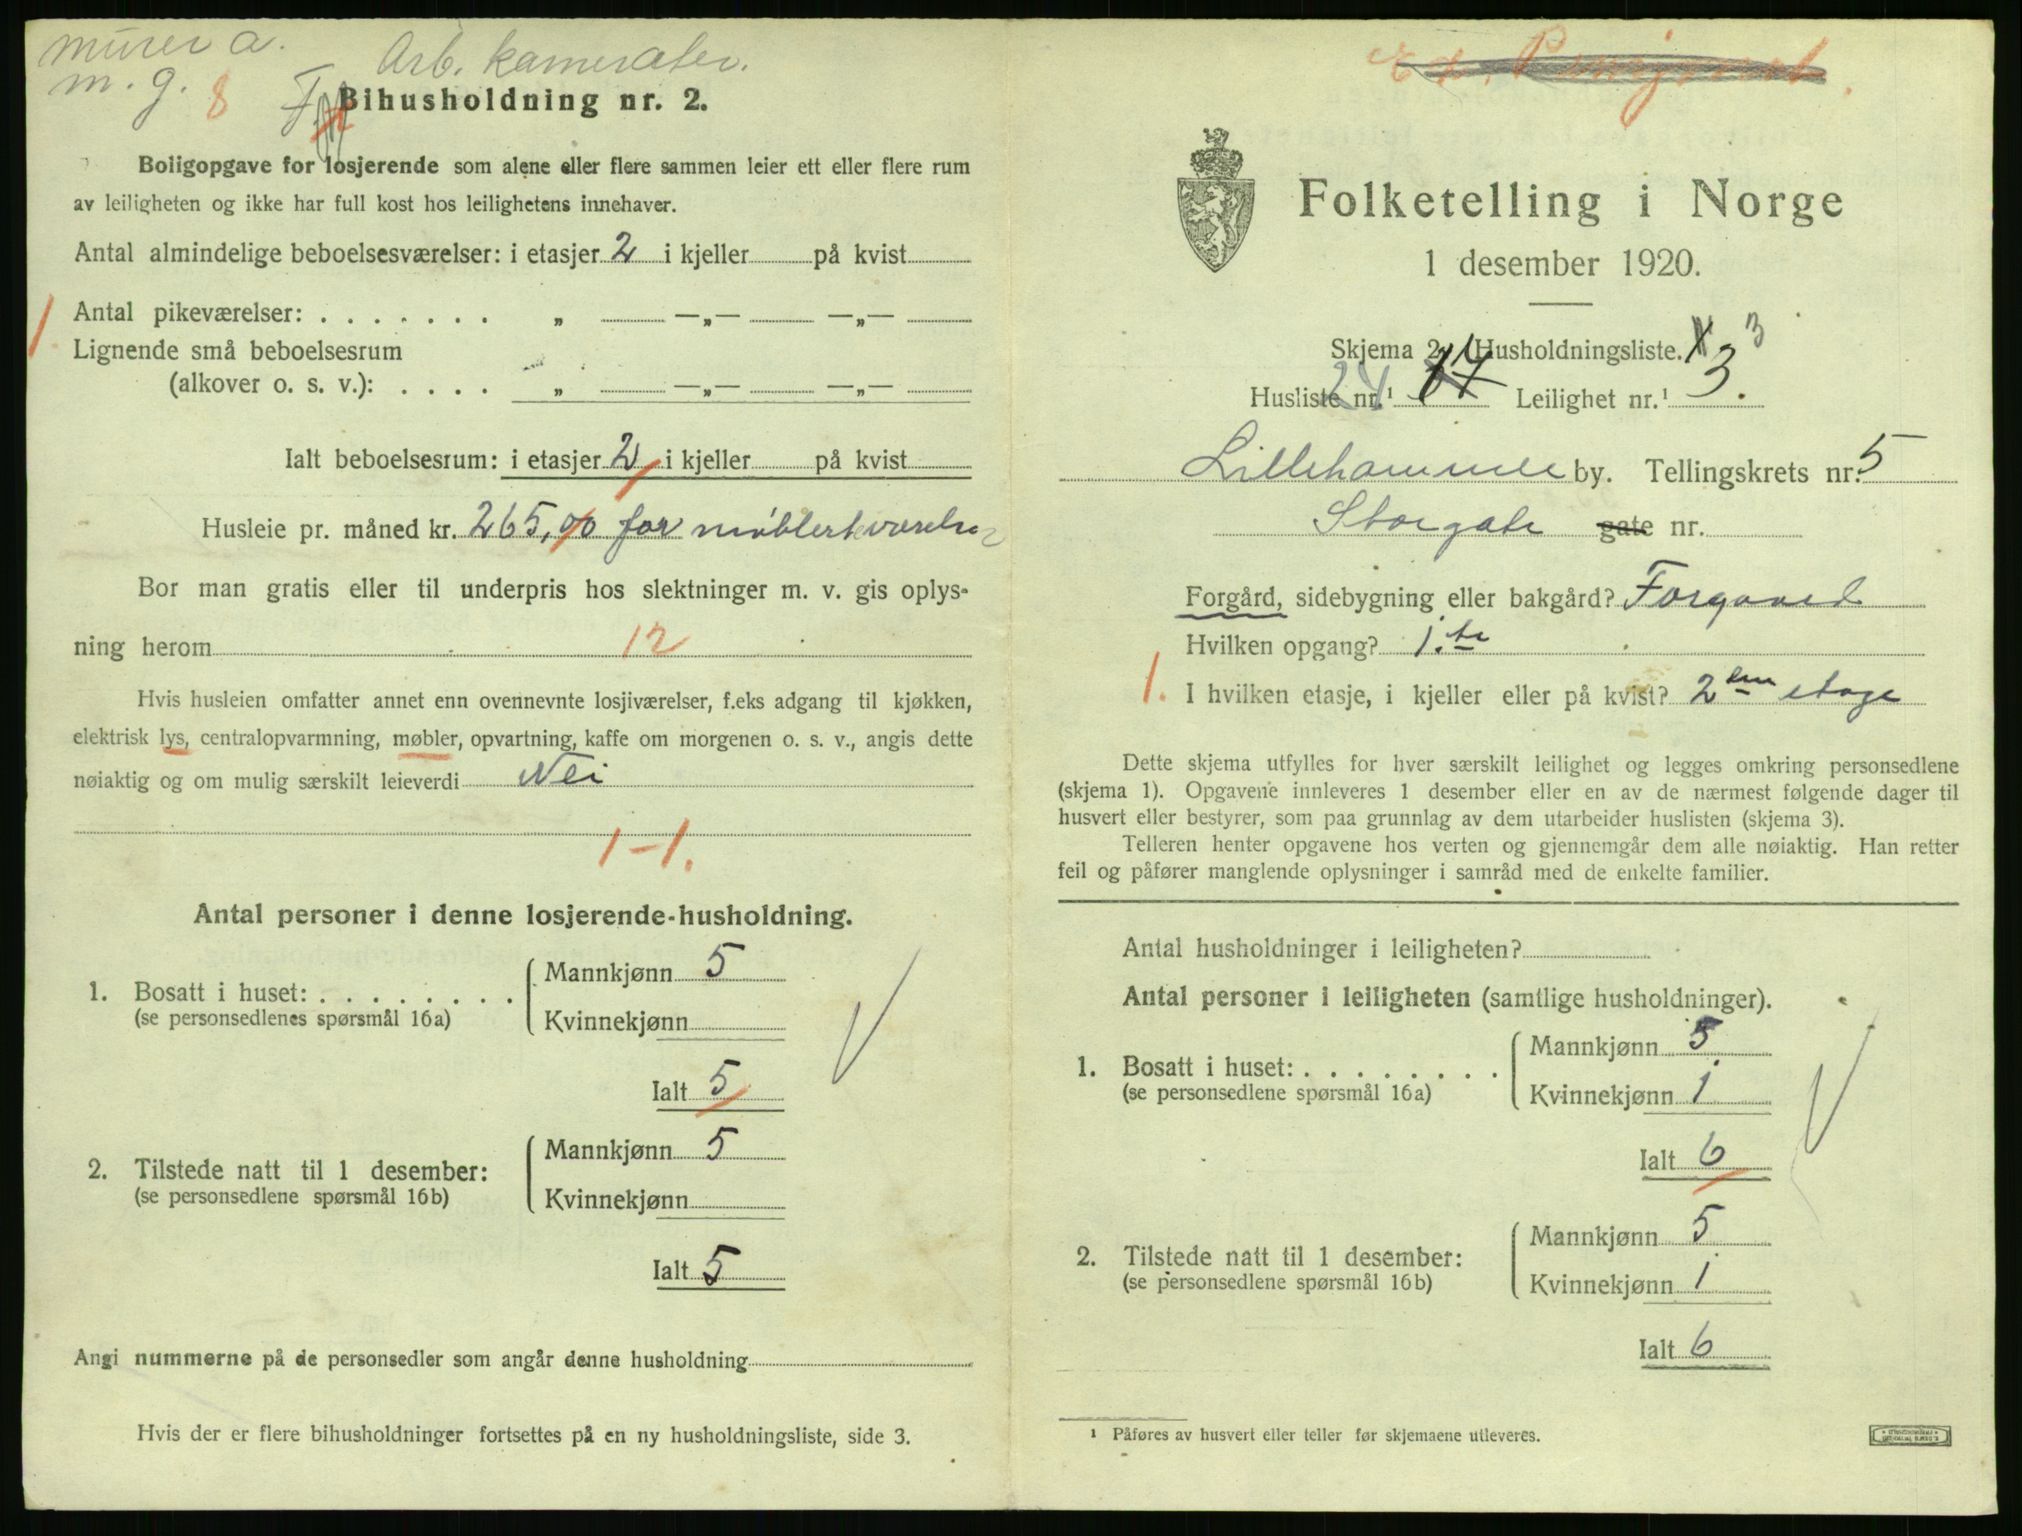 murer a.
m. g. 8
Arb. kamerater.
Bihusholdning nr. 2.
Boligopgave for losjerende som alene eller flere sammen leier ett eller flere rum
av leiligheten og ikke har full kost hos leilighetens innehaver.
Antal almindelige beboelsesværelser: i etasjer 2 i kjeller på kvist
1 Antal pikeværelser: . . . . . . . „ —„— —„—
Lignende små beboelsesrum
(alkover o. s. v.): . . . . „ —„— —„—
Ialt beboelsesrum: i etasjer 2 i kjeller på kvist
Husleie pr. måned kr. 265,00 for møblert værelse
Bor man gratis eller til underpris hos slektninger m. v. gis oplys-
ning herom 12
Hvis husleien omfatter annet enn ovennevnte losjiværelser, f.eks adgang til kjøkken,
elektrisk lys, centralopvarmning, møbler, opvartning, kaffe om morgenen o. s. v., angis dette
nøiaktig og om mulig særskilt leieverdi Nei
1-1.
Antal personer i denne losjerende-husholdning.
1. Bosatt i huset: . . . . . . . .
(se personsedlenes spørsmål 16a)
Mannkjønn 5
Kvinnekjønn
Ialt 5
2. Tilstede natt til 1 desember:
(se personsedlene spørsmål 16b)
Mannkjønn 5
Kvinnekjønn
Ialt 5
Angi nummerne på de personsedler som angår denne husholdning
Hvis der er flere bihusholdninger fortsettes på en ny husholdningsliste, side 3.
Folketelling i Norge
1 desember 1920.
Skjema 2. Husholdningsliste. 3
Husliste nr.¹ 24 Leilighet nr.¹ 3.
Lillehammer by. Tellingskrets nr. 5
Storgate gate nr.
Forgård, sidebygning eller bakgård? Forgaard
Hvilken opgang? 1.te
1. I hvilken etasje, i kjeller eller på kvist? 2den etage
Dette skjema utfylles for hver særskilt leilighet og legges omkring personsedlene
(skjema 1). Opgavene innleveres 1 desember eller en av de nærmest følgende dager til
husvert eller bestyrer, som paa grunnlag av dem utarbeider huslisten (skjema 3).
Telleren henter opgavene hos verten og gjennemgår dem alle nøiaktig. Han retter
feil og påfører manglende oplysninger i samråd med de enkelte familier.
Antal husholdninger i leiligheten?
Antal personer i leiligheten (samtlige husholdninger).
1. Bosatt i huset: . . . . . . . .
(se personsedlene spørsmål 16a)
Mannkjønn 5
Kvinnekjønn 1
Ialt 6
2. Tilstede natt til 1 desember:
(se personsedlene spørsmål 16b)
Mannkjønn 5
Kvinnekjønn 1
Ialt 6
¹ Påføres av husvert eller teller før skjemaene utleveres.